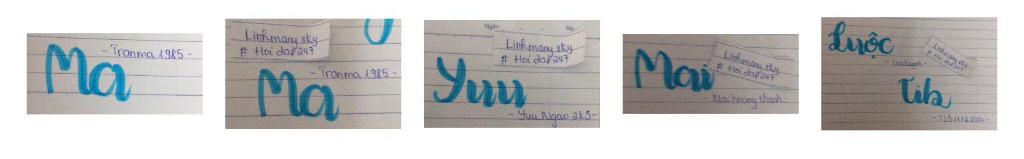 Ma
- Tranma 1985 -
Linhmany sky
# Hoi dap 247
- Tranma 1985 -
Ma
Linhmany sky
# Hoi dap 247
Yuu
- Yuu Ngao 2k5 -
Linhmany sky
# Hoi dap 247
Mai
- Mai hoang thanh -
Lược
Linhmany sky
# Hoi dap 247